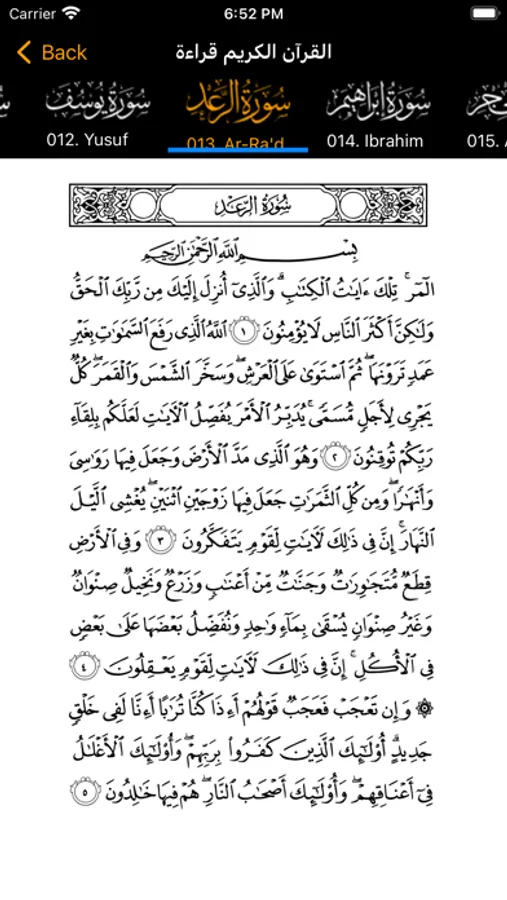 Carrier 6:52 PM
Back القرآن الكريم قراءة
سورة يوسف سورة الرعد سورة إبراهيم
012. Yusuf 013. Ar-Ra'd 014. Ibrahim 015.
سُورَةُ الرَّعْدِ
بِسْمِ اللَّهِ الرَّحْمَٰنِ الرَّحِيمِ
الٓمٓرۚ تِلْكَ ءَايَٰتُ الْكِتَٰبِۗ وَالَّذِىٓ أُنزِلَ إِلَيْكَ مِن رَّبِّكَ الْحَقُّ
وَلَٰكِنَّ أَكْثَرَ النَّاسِ لَا يُؤْمِنُونَ ١ اللَّهُ الَّذِى رَفَعَ السَّمَٰوَٰتِ بِغَيْرِ
عَمَدٍ تَرَوْنَهَاۖ ثُمَّ اسْتَوَىٰ عَلَى الْعَرْشِۖ وَسَخَّرَ الشَّمْسَ وَالْقَمَرَۖ كُلٌّ
يَجْرِى لِأَجَلٍ مُّسَمًّىۚ يُدَبِّرُ الْأَمْرَ يُفَصِّلُ الْءَايَٰتِ لَعَلَّكُم بِلِقَآءِ
رَبِّكُمْ تُوقِنُونَ ٢ وَهُوَ الَّذِى مَدَّ الْأَرْضَ وَجَعَلَ فِيهَا رَوَٰسِىَ
وَأَنْهَٰرًاۖ وَمِن كُلِّ الثَّمَرَٰتِ جَعَلَ فِيهَا زَوْجَيْنِ اثْنَيْنِۖ يُغْشِى الَّيْلَ
النَّهَارَۚ إِنَّ فِى ذَٰلِكَ لَءَايَٰتٍ لِّقَوْمٍ يَتَفَكَّرُونَ ٣ وَفِى الْأَرْضِ
قِطَعٌ مُّتَجَٰوِرَٰتٌ وَجَنَّٰتٌ مِّنْ أَعْنَٰبٍ وَزَرْعٌ وَنَخِيلٌ صِنْوَانٌ
وَغَيْرُ صِنْوَانٍ يُسْقَىٰ بِمَآءٍ وَٰحِدٍ وَنُفَضِّلُ بَعْضَهَا عَلَىٰ بَعْضٍ
فِى الْأُكُلِۚ إِنَّ فِى ذَٰلِكَ لَءَايَٰتٍ لِّقَوْمٍ يَعْقِلُونَ ٤
۞ وَإِن تَعْجَبْ فَعَجَبٌ قَوْلُهُمْ أَءِذَا كُنَّا تُرَٰبًا أَءِنَّا لَفِى خَلْقٍ
جَدِيدٍۗ أُو۟لَٰٓئِكَ الَّذِينَ كَفَرُوا۟ بِرَبِّهِمْۖ وَأُو۟لَٰٓئِكَ الْأَغْلَٰلُ
فِىٓ أَعْنَاقِهِمْۖ وَأُو۟لَٰٓئِكَ أَصْحَٰبُ النَّارِۖ هُمْ فِيهَا خَٰلِدُونَ ٥